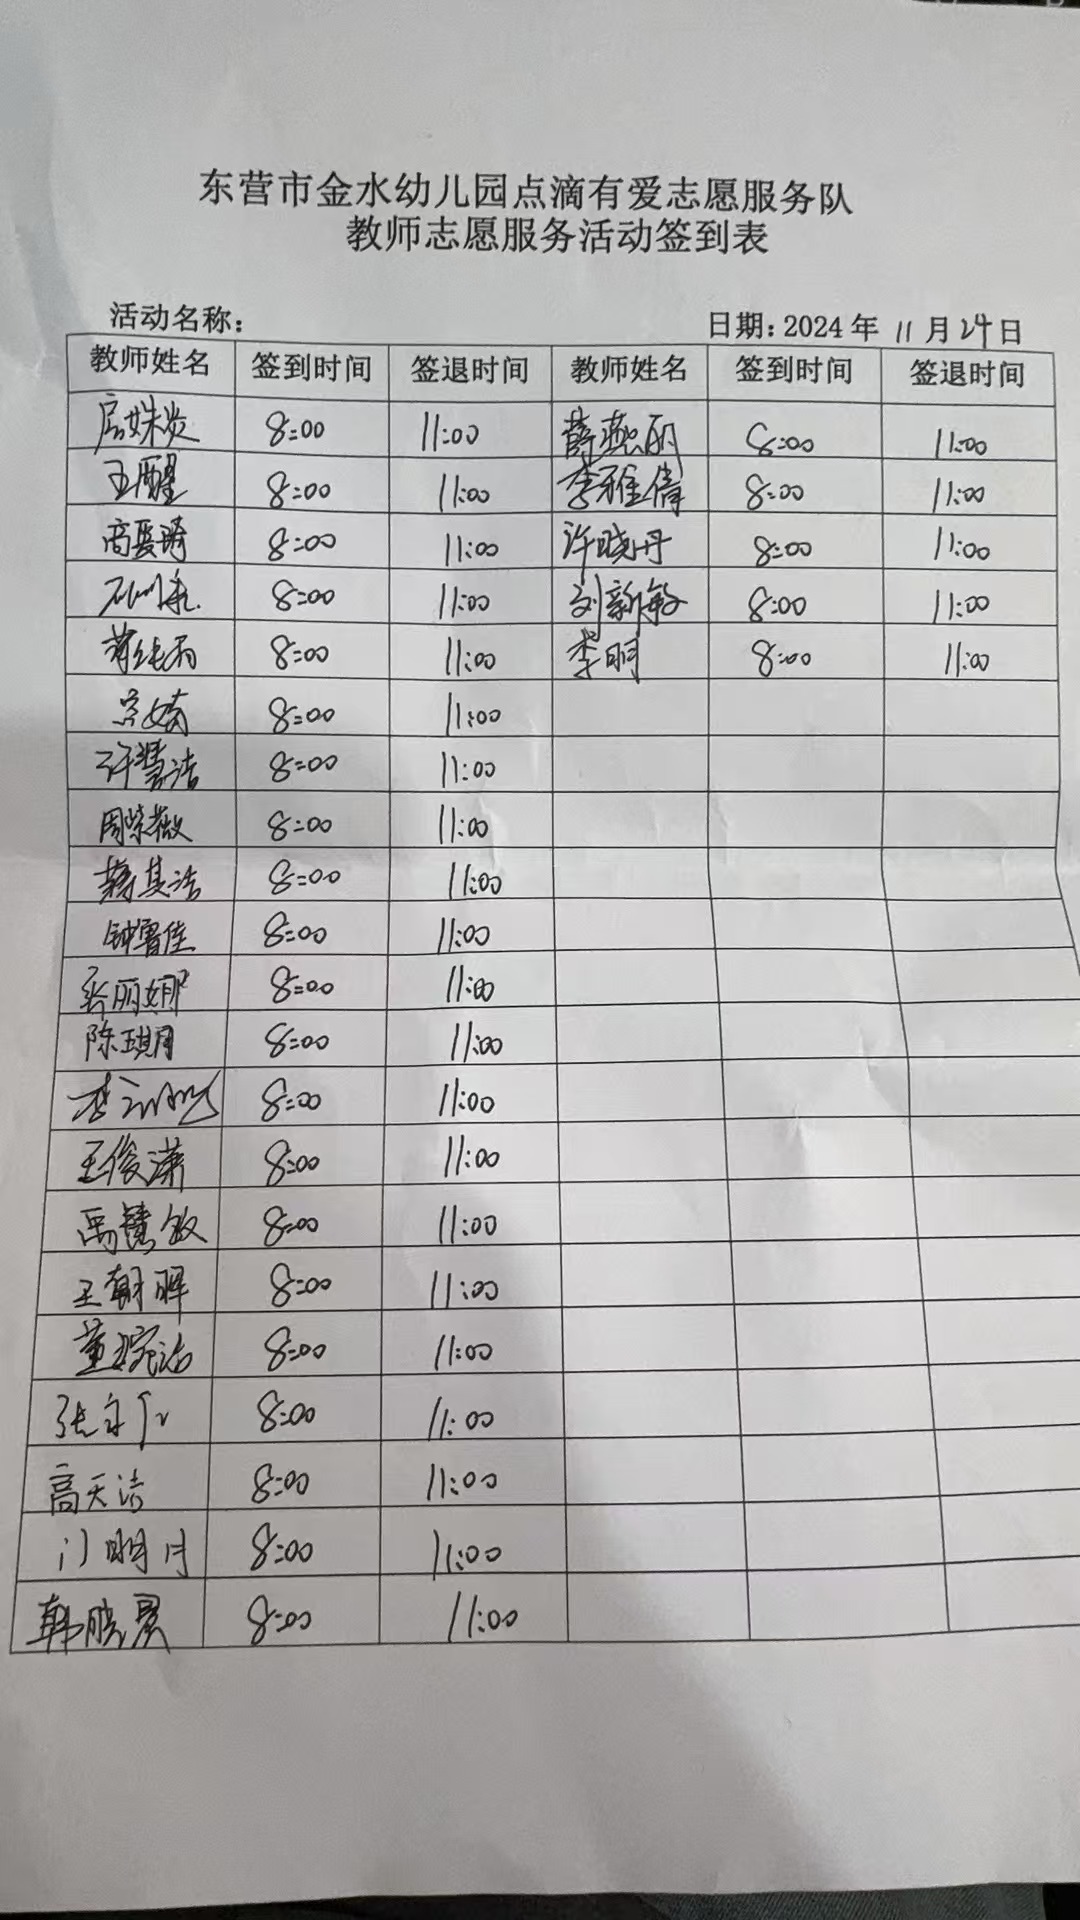 东营市金水幼儿园点滴有爱志愿服务队
教师志愿服务活动签到表
活动名称： 日期：2024年 11月29日
教师姓名 签到时间 签退时间 教师姓名 签到时间 签退时间
8:00 11:00 薛燕丽 8:00 11:00
王醒 8:00 11:00 李雅倩 8:00 11:00
高爱琦 8:00 11:00 许晓丹 8:00 11:00
8:00 11:00 刘新敏 8:00 11:00
8:00 11:00 李明 8:00 11:00
8:00 11:00
许慧洁 8:00 11:00
周紫薇 8:00 11:00
其洁 8:00 11:00
钟鲁佳 8:00 11:00
张丽娜 8:00 11:00
陈琪月 8:00 11:00
李 8:00 11:00
王俊潇 8:00 11:00
禹慧敏 8:00 11:00
王朝晖 8:00 11:00
董婉洁 8:00 11:00
张 8:00 11:00
高天洁 8:00 11:00
门明月 8:00 11:00
韩晓晨 8:00 11:00